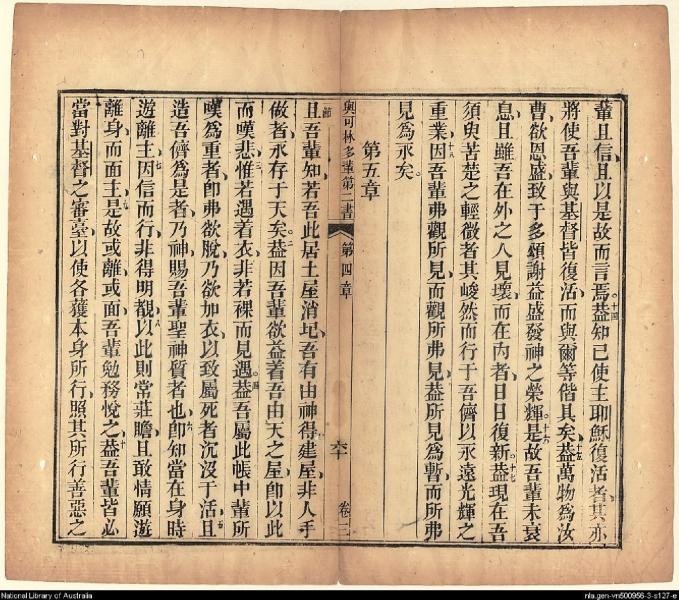 輩且信且以是故而言焉十四葢知已使主耶穌復活者其亦
將使吾輩與基督皆復活而與爾等偕其矣十五葢萬物爲汝
曹欲恩盛致于多頌謝益盛發神之榮輝十六是故吾輩未衰
息且雖吾在外之人見壞而在內者日日復新十七葢現在吾
須臾苦楚之輕微者其峻然而行于吾儕以永遠光輝之
重業十八因吾輩弗觀所見而觀所弗見葢所見爲暫而所弗
見爲永矣
第五章
與可林多輩第二書 第四章 六十 卷二
一節且吾輩知若吾此居土屋消圮吾有由神得建屋非人手
做者永存于天矣二葢因吾輩欲益着吾由天之屋卽以此
而嘆悲三惟若遇着衣非若裸而見遇四葢吾屬此帳中輩所
嘆爲重者卽弗欲脫乃欲加衣以致屬死者沉沒于活且五
造吾儕爲是者乃神賜吾輩聖神質者也六卽知當在身時
遊離主七因信而行非得明覩八以此則常莊瞻且敢情願遊
離身而面主九是故或離或面吾輩勉務悅之十葢吾輩皆必
當對基督之審臺以使各獲本身所行照其所行善惡之
National Library of Australia
nla.gen-vn500956-3-s127-e